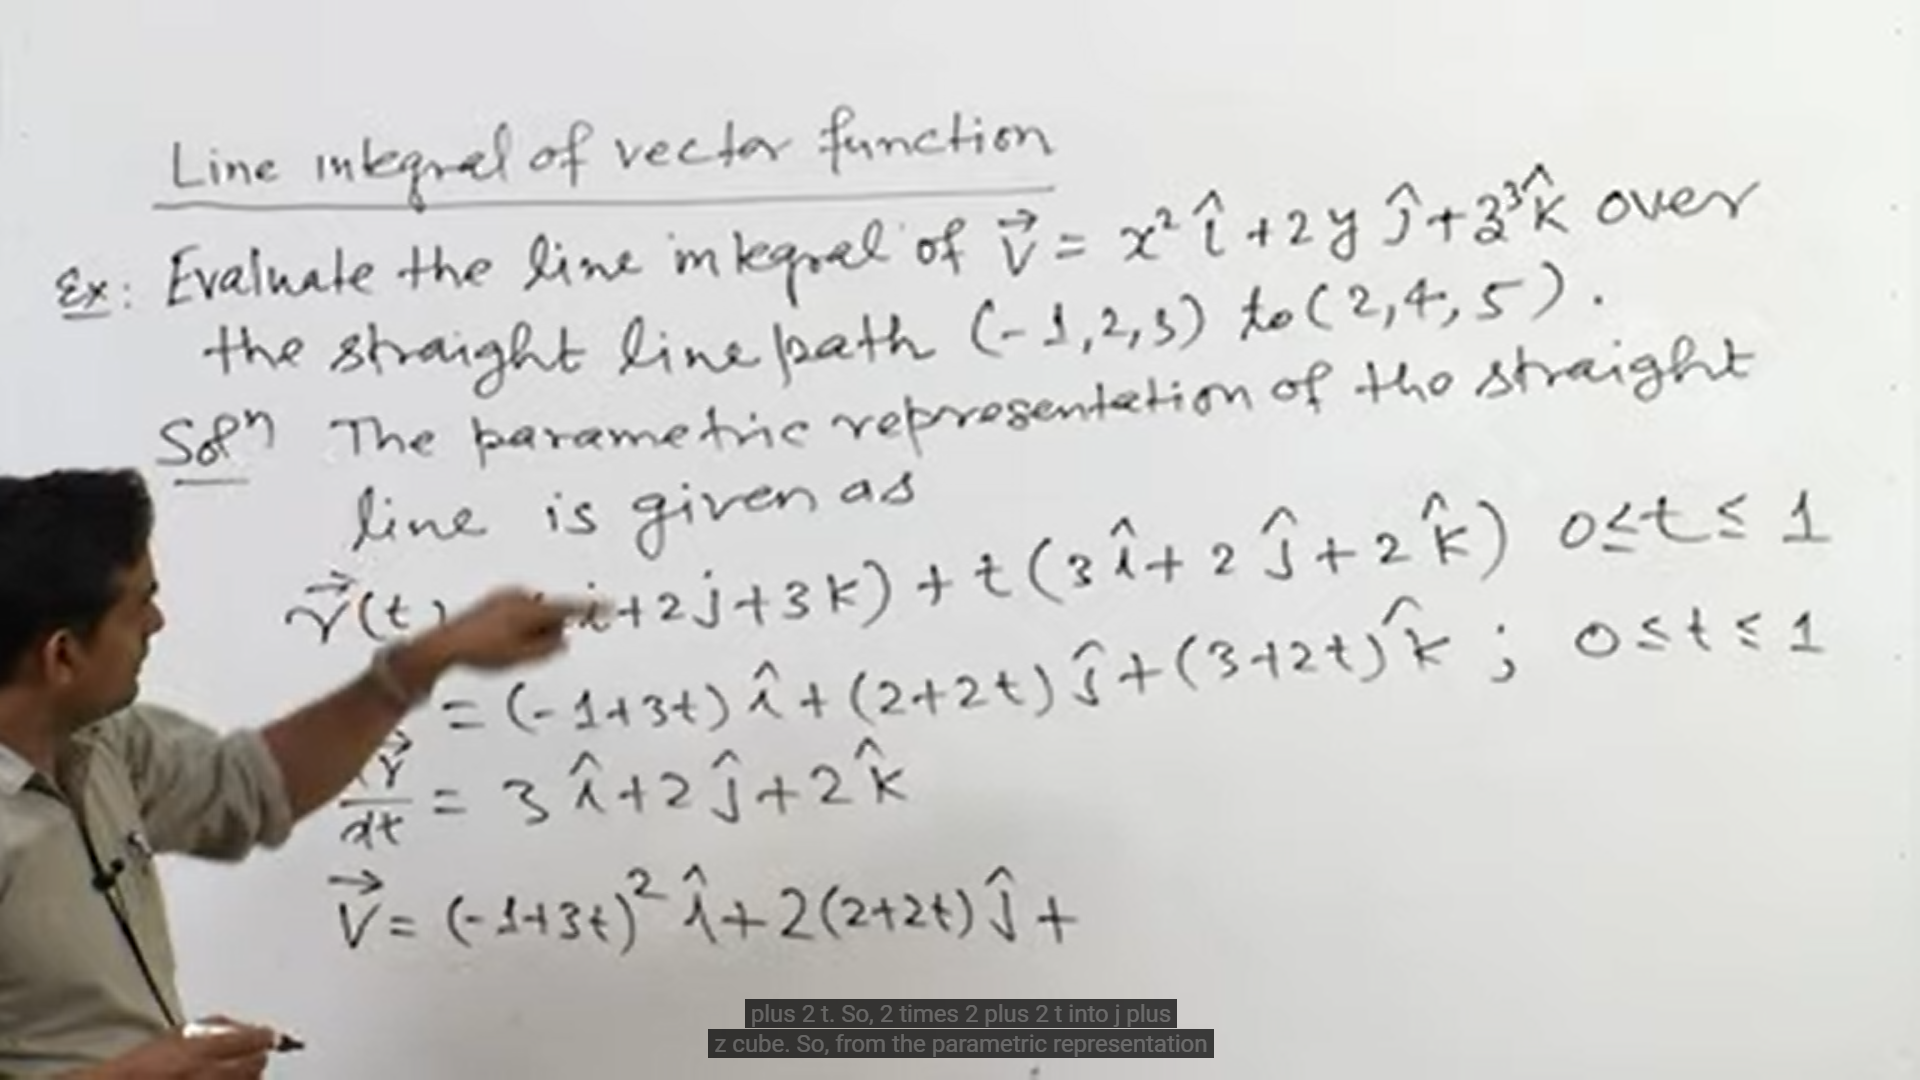 Line integral of vector function
Ex: Evaluate the line integral of V⃗ = x² î + 2y ĵ + z³ k̂ over
the straight line path (-1,2,3) to (2,4,5).
Solⁿ The parametric representation of the straight
line is given as
r⃗(t) i+2j+3k) + t(3î + 2ĵ + 2k̂) 0≤t≤1
= (-1+3t) î + (2+2t) ĵ + (3+2t) k̂ ; 0≤t≤1
r⃗/dt = 3î + 2ĵ + 2k̂
V⃗ = (-1+3t)² î + 2(2+2t) ĵ +
plus 2 t. So, 2 times 2 plus 2 t into j plus
z cube. So, from the parametric representation